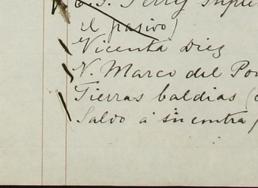 E. S. Terry
el pasivo)
Vicenta Diez
N. Marco del
Tierras baldias
Saldo á su contra